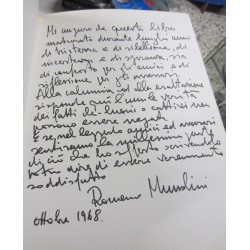 Mi auguro che questo libro
maturato durante lunghi anni
di tristezza e di riflessione, di
incertezza e di speranza, sia
di conforto per gli amici e di
riflessione per gli avversari.
Alla calunnia ed alla esaltazione
risponde qui l'umile verità
dei fatti che buoni o cattivi non
possono essere negati.
E se, nel leggerlo amici ed avversari
sentiranno la millesima parte
di ciò che ho sofferto scrivendolo
potrò dire di essere veramente
soddisfatto.
Romano Mussolini
ottobre 1968.